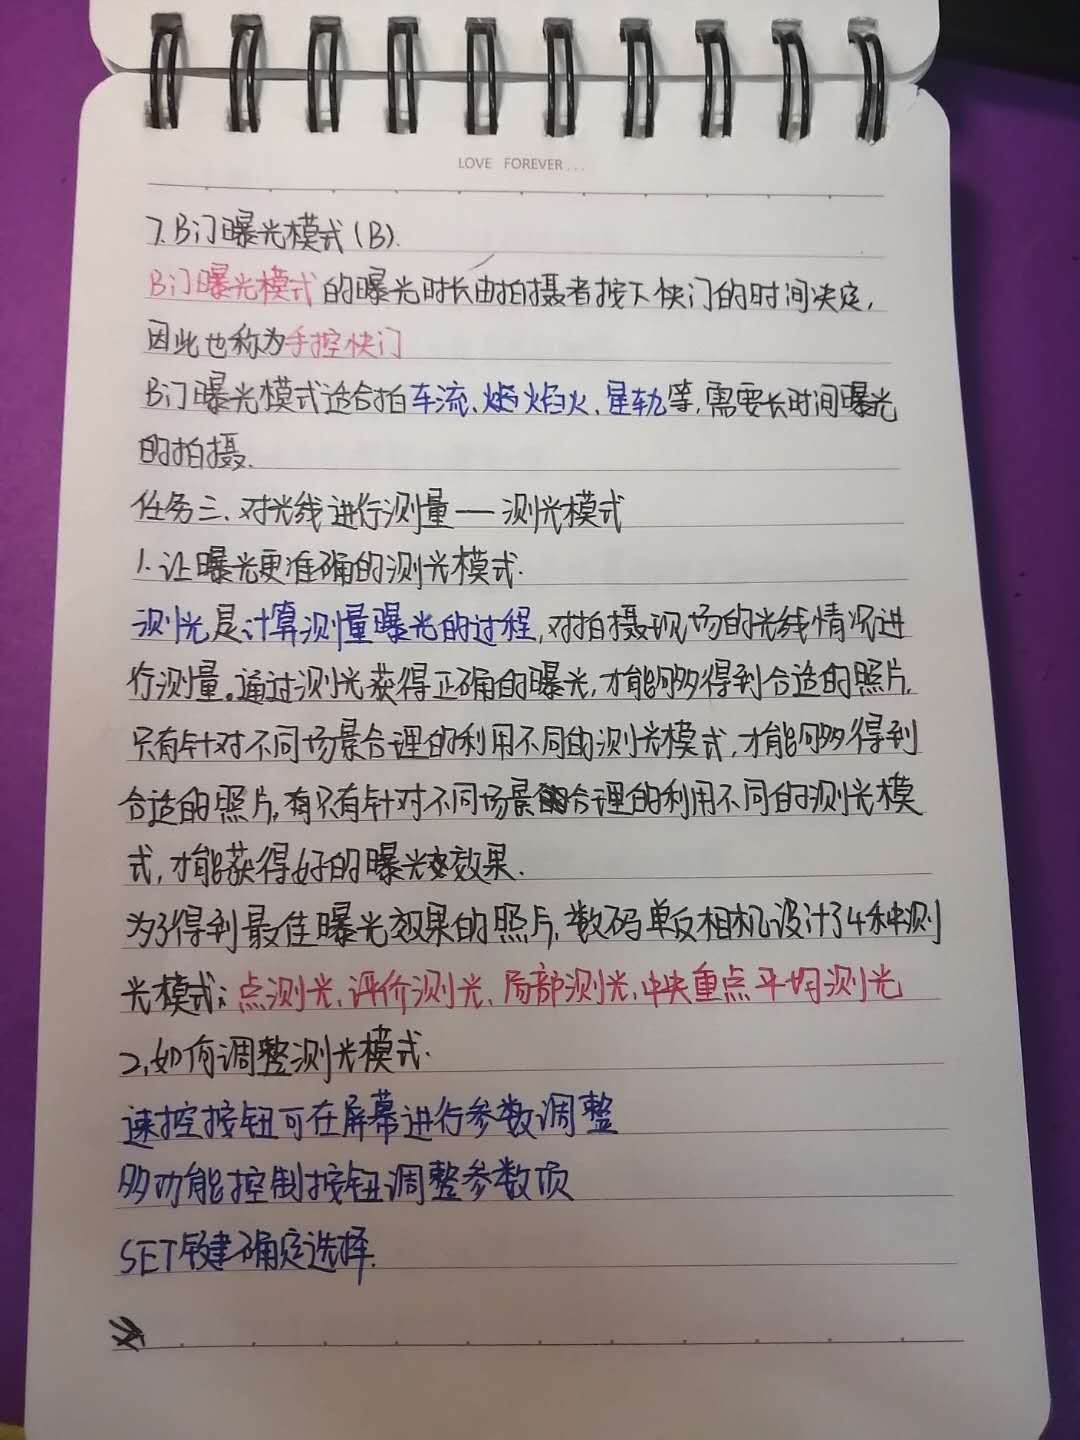 LOVE FOREVER...
7.B门曝光模式(B).
B门曝光模式的曝光时长由拍摄者按下快门的时间决定,
因此也称为手控快门
B门曝光模式适合拍车流、焰火、星轨等,需要长时间曝光
的拍摄.
任务三、对光线进行测量——测光模式
1.让曝光更准确的测光模式.
测光是计算测量曝光的过程,对拍摄现场的光线情况进
行测量。通过测光获得正确的曝光,才能够得到合适的照片,
只有针对不同场景合理的利用不同的测光模式,才能够得到
合适的照片,只有针对不同场景合理的利用不同的测光模
式,才能获得好的曝光效果.
为了得到最佳曝光效果的照片,数码单反相机设计了4种测
光模式:点测光、评价测光、局部测光、中央重点平均测光
2.如何调整测光模式.
速控按钮可在屏幕进行参数调整
多功能控制按钮调整参数项
SET键确定选择.